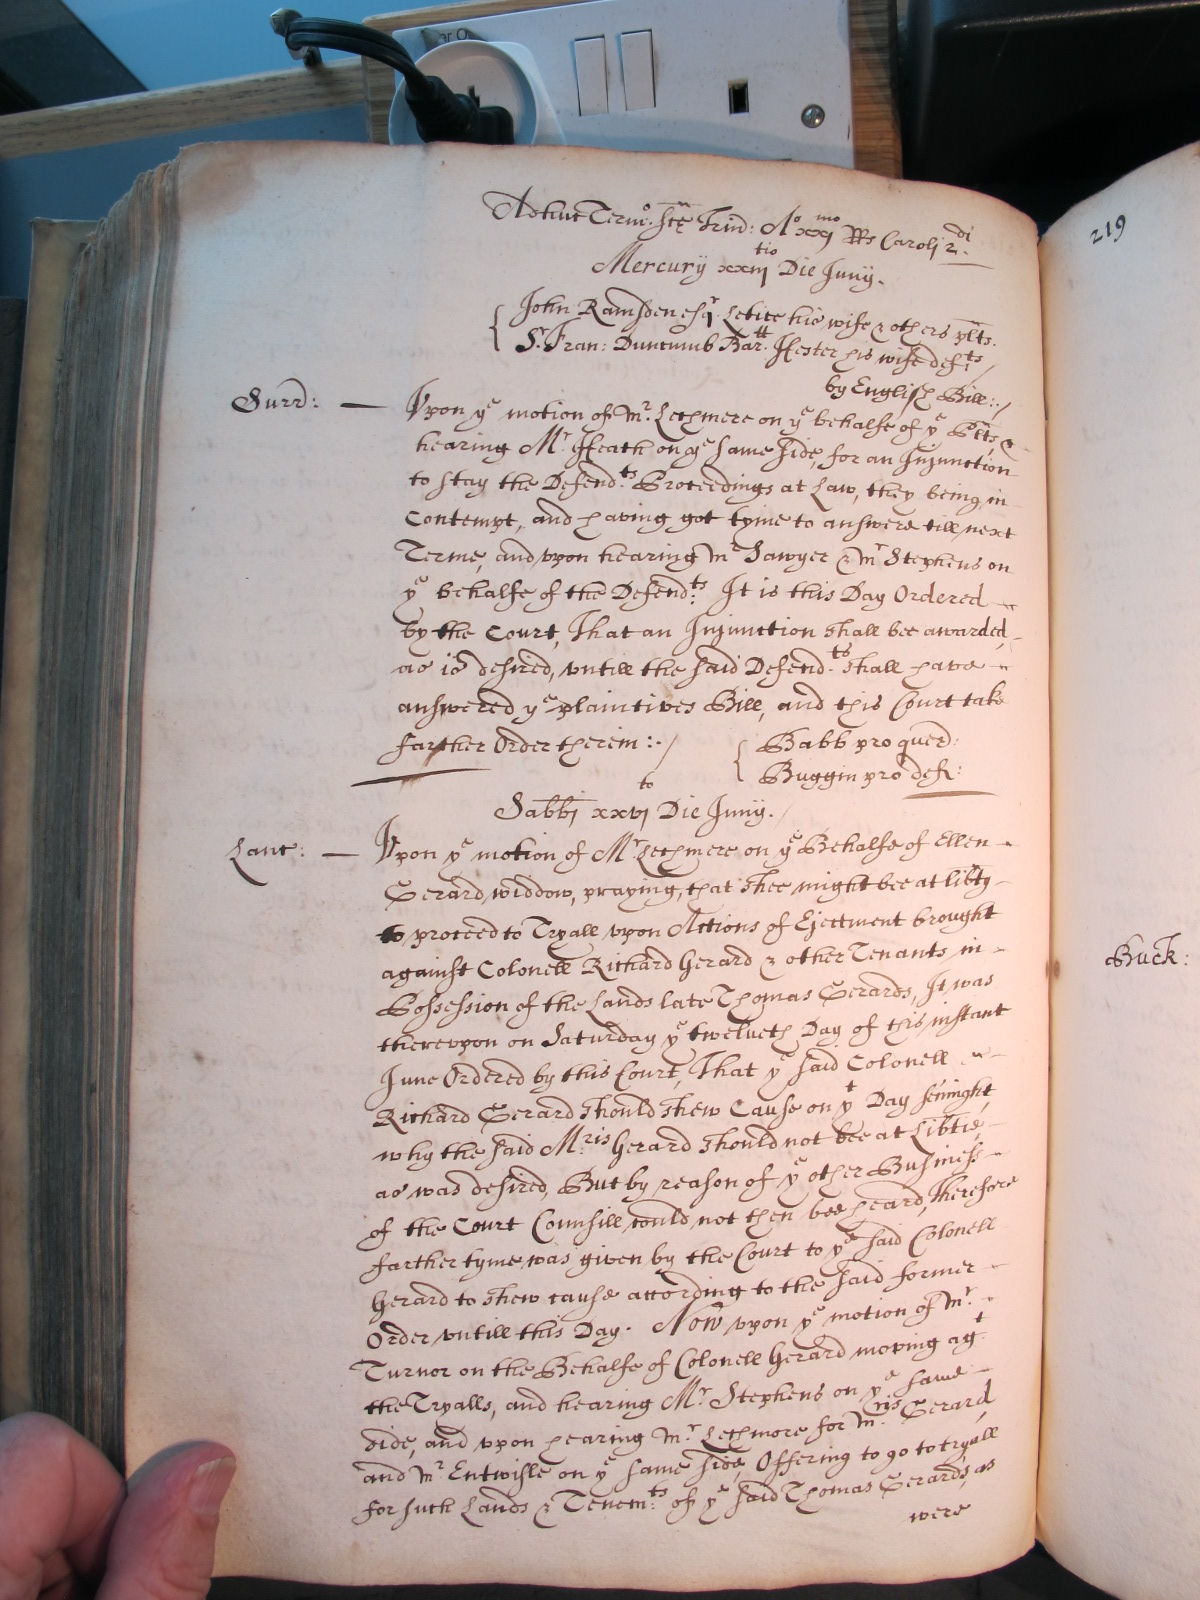 Adhuc Term.o Scē Trin̄: A.o xxj mo RRs Caroli 2.di
Mercurij xxiij tio Die Junij.
John Ramsden esq.r Letice his wife & others plts.
S.r Fran: Duncumb Bar.tt Hester his wife def.ts
by English Bill:/
Surrd: — Upon y.e motion of M.r Lechmere on y.e behalfe of y.e Plts, &
hearing M.r Heath on y.e same side, for an Injunction
to stay the Defend.ts Proceedings at Law, they being in
Contempt, and having got tyme to answere till next
Terme, and upon hearing M.r Sawyer & M.r Stephens on
y.e behalfe of the Defend.ts It is this Day Ordered
by the Court, That an Injunction shall bee awarded,
as is desired, untill the said Defend.ts shall have
answered y.e plaintives Bill, and this Court take
farther Order therein:/
Babb pro quer:
Buggin pro def:
Sabbi xxvj to Die Junij.
Lanc: — Upon y.e motion of M.r Lechmere on y.e Behalfe of Ellen
Gerard widdow, praying, that shee might bee at libty
to proceed to Tryall upon Actions of Ejectment brought
against Colonell Richard Gerard & other Tenants in
Possession of the Lands late Thomas Gerards, It was
thereupon on Saturday y.e twelveth Day of this instant
June Ordered by this Court, That y.e said Colonell
Richard Gerard should shew Cause on y.t Day seninght,
why the said M.ris Gerard should not bee at Libtie,
as was desired, But by reason of y.e other Business
of the Court Counsill could not then bee heard, Therefore
farther tyme was given by the Court to y.e said Colonell
Gerard to shew cause according to the said former
Order untill this Day. Now upon y.e motion of M.r
Turnor on the Behalfe of Colonell Gerard moving ag.t
the Tryalls, and hearing M.r Stephens on y.e same
side, and upon hearing M.r Lechmore for M.ris Gerard,
and M.r Entwisle on y.e same side, Offering to go to tryall
for such Lands & Tenem.ts of y.e said Thomas Gerards, as
were
219
Buck: